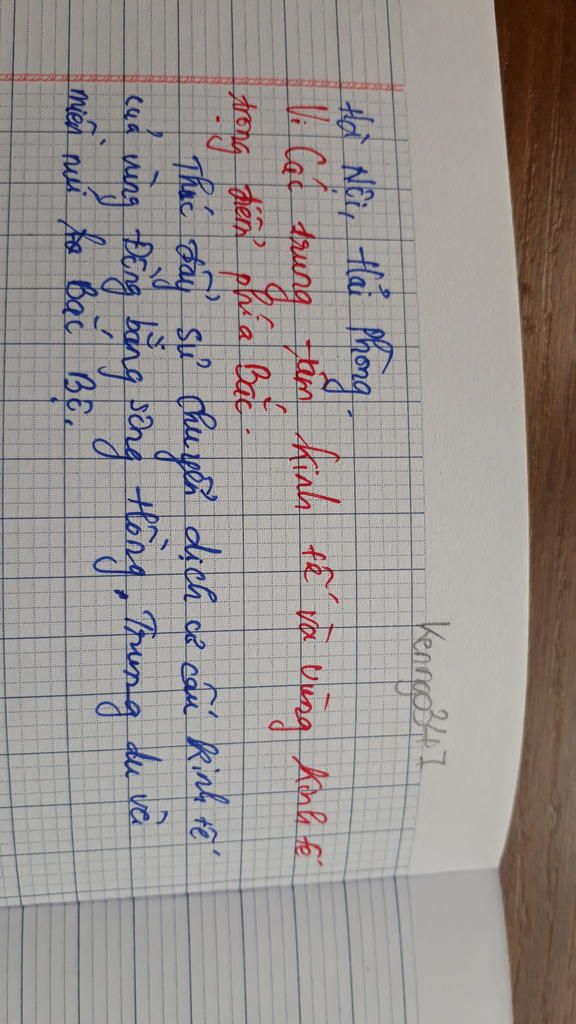 Kenngo3417
Hà Nội, Hải Phòng.
V. Các trung tâm kinh tế và vùng kinh tế
trọng điểm phía Bắc.
Thúc đẩy sự chuyển dịch cơ cấu kinh tế
của vùng Đồng bằng sông Hồng, Trung du và
miền núi Bắc Bộ.